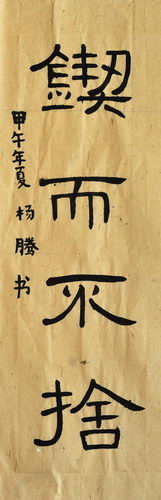 鍥而不捨
甲午年夏 杨腾书